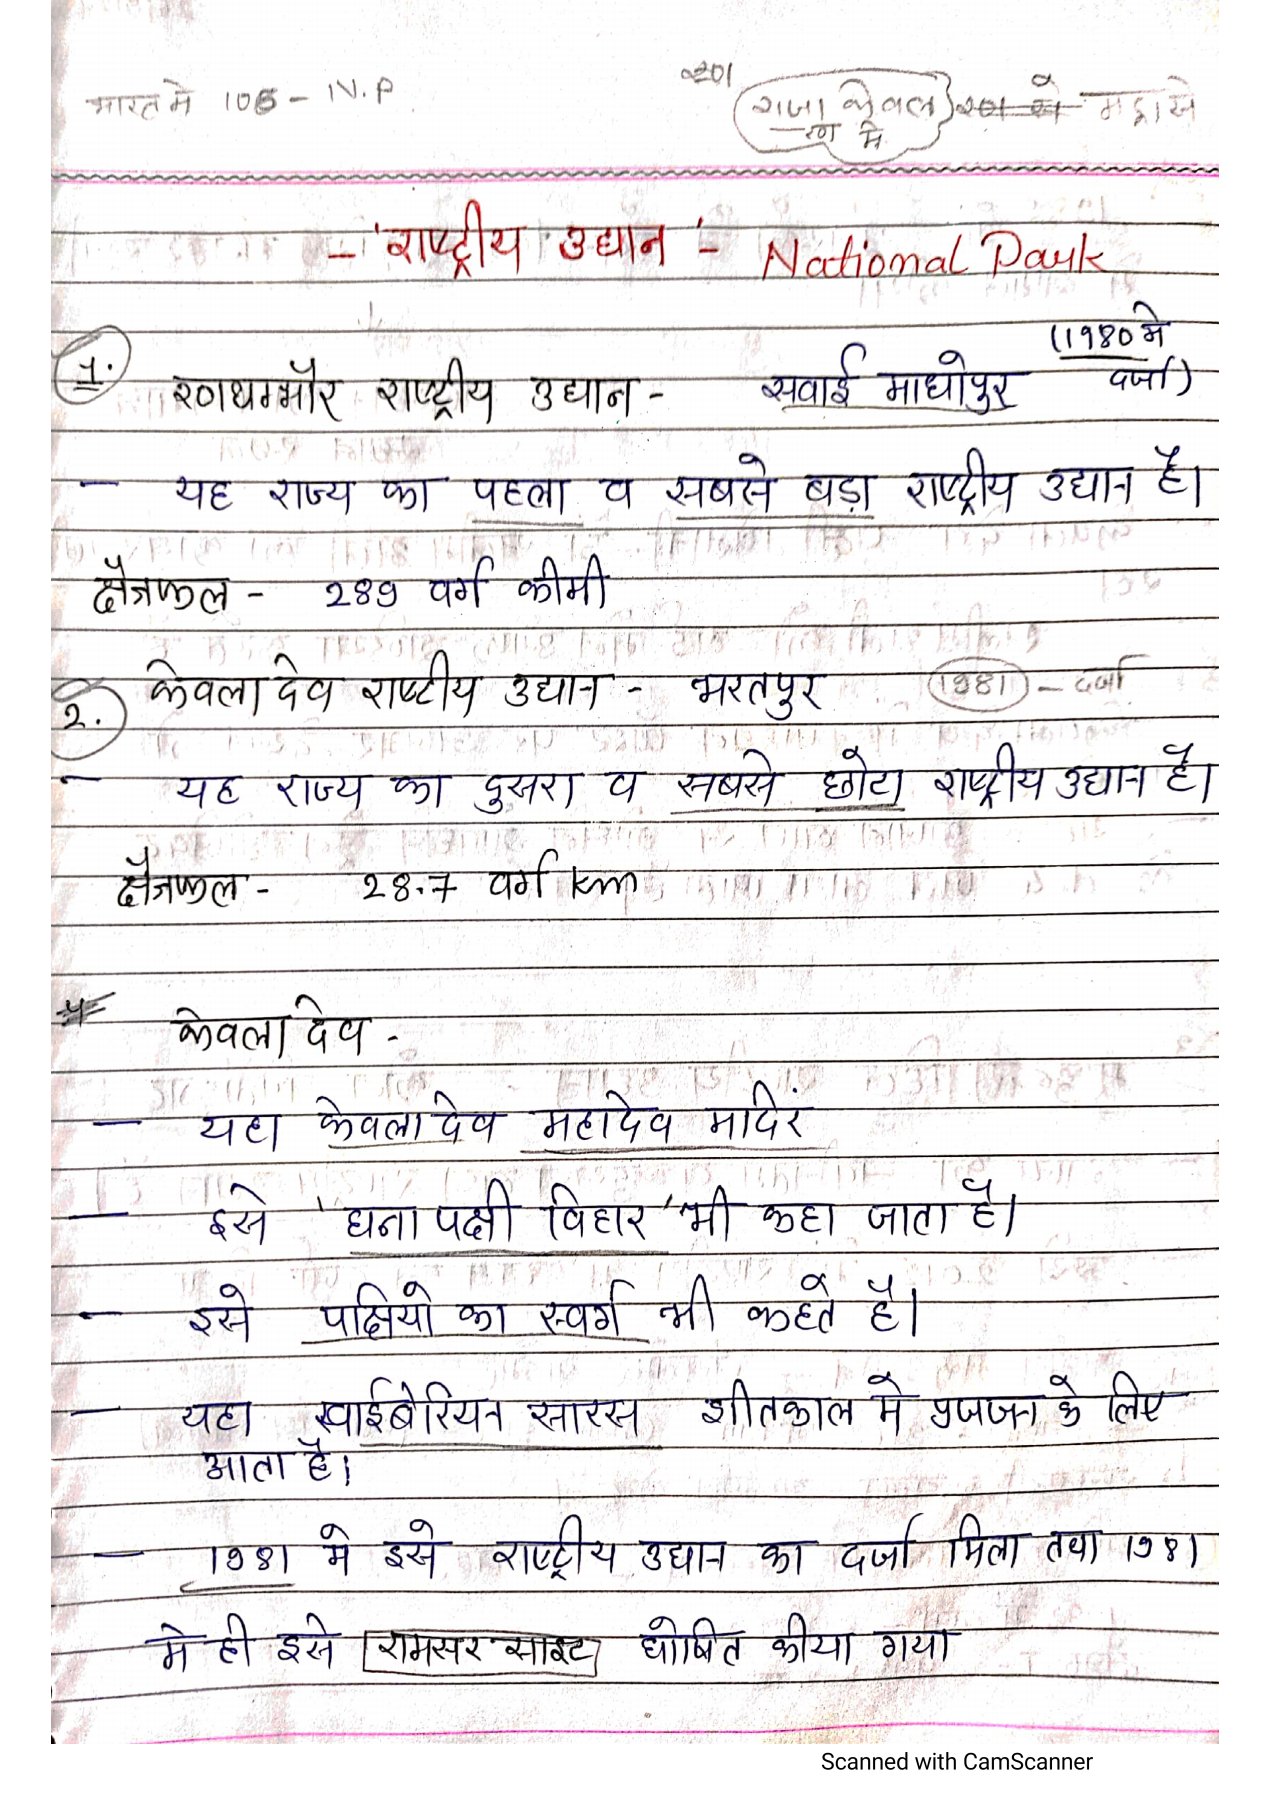 भारत मे 106 - N.P
रण
राजा केवल रण मे
रण मे
- 'राष्ट्रीय उद्यान' - National Park
(1980 मे
1. रणथम्भौर राष्ट्रीय उद्यान - सवाई माधोपुर दर्जा)
- यह राज्य का पहला व सबसे बड़ा राष्ट्रीय उद्यान है।
क्षैत्रफल - 289 वर्ग कीमी
2. केवलादेव राष्टीय उद्यान - भरतपुर 1981 - दर्जा
- यह राज्य का दुसरा व सबसे छोटा राष्ट्रीय उद्यान है।
क्षैत्रफल - 28.7 वर्ग km
केवलादेव -
- यहा केवलादेव महादेव मादिरं
- इसे 'घना पक्षी विहार' भी कहा जाता है।
- इसे पक्षियो का स्वर्ग भी कहते है।
- यहा साईबेरियन सारस शीतकाल मे प्रजजन के लिए
आता है।
- 1981 मे इसे राष्ट्रीय उद्यान का दर्जा मिला तथा 1981
मे ही इसे रामसर साइट घोषित कीया गया
Scanned with CamScanner